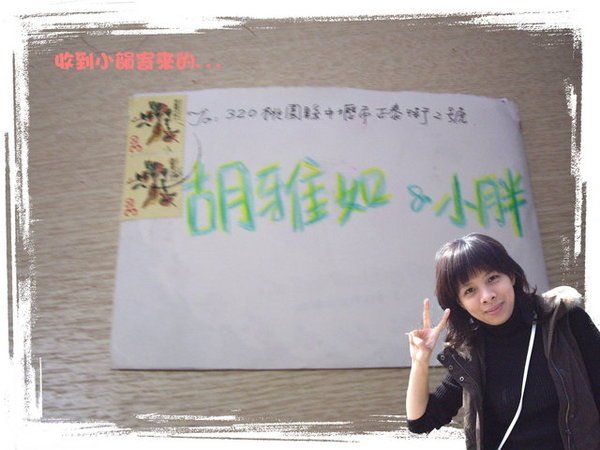 收到小韶寄來的...
To. 320 桃園縣中壢市 街2號
胡雅如 & 小胖